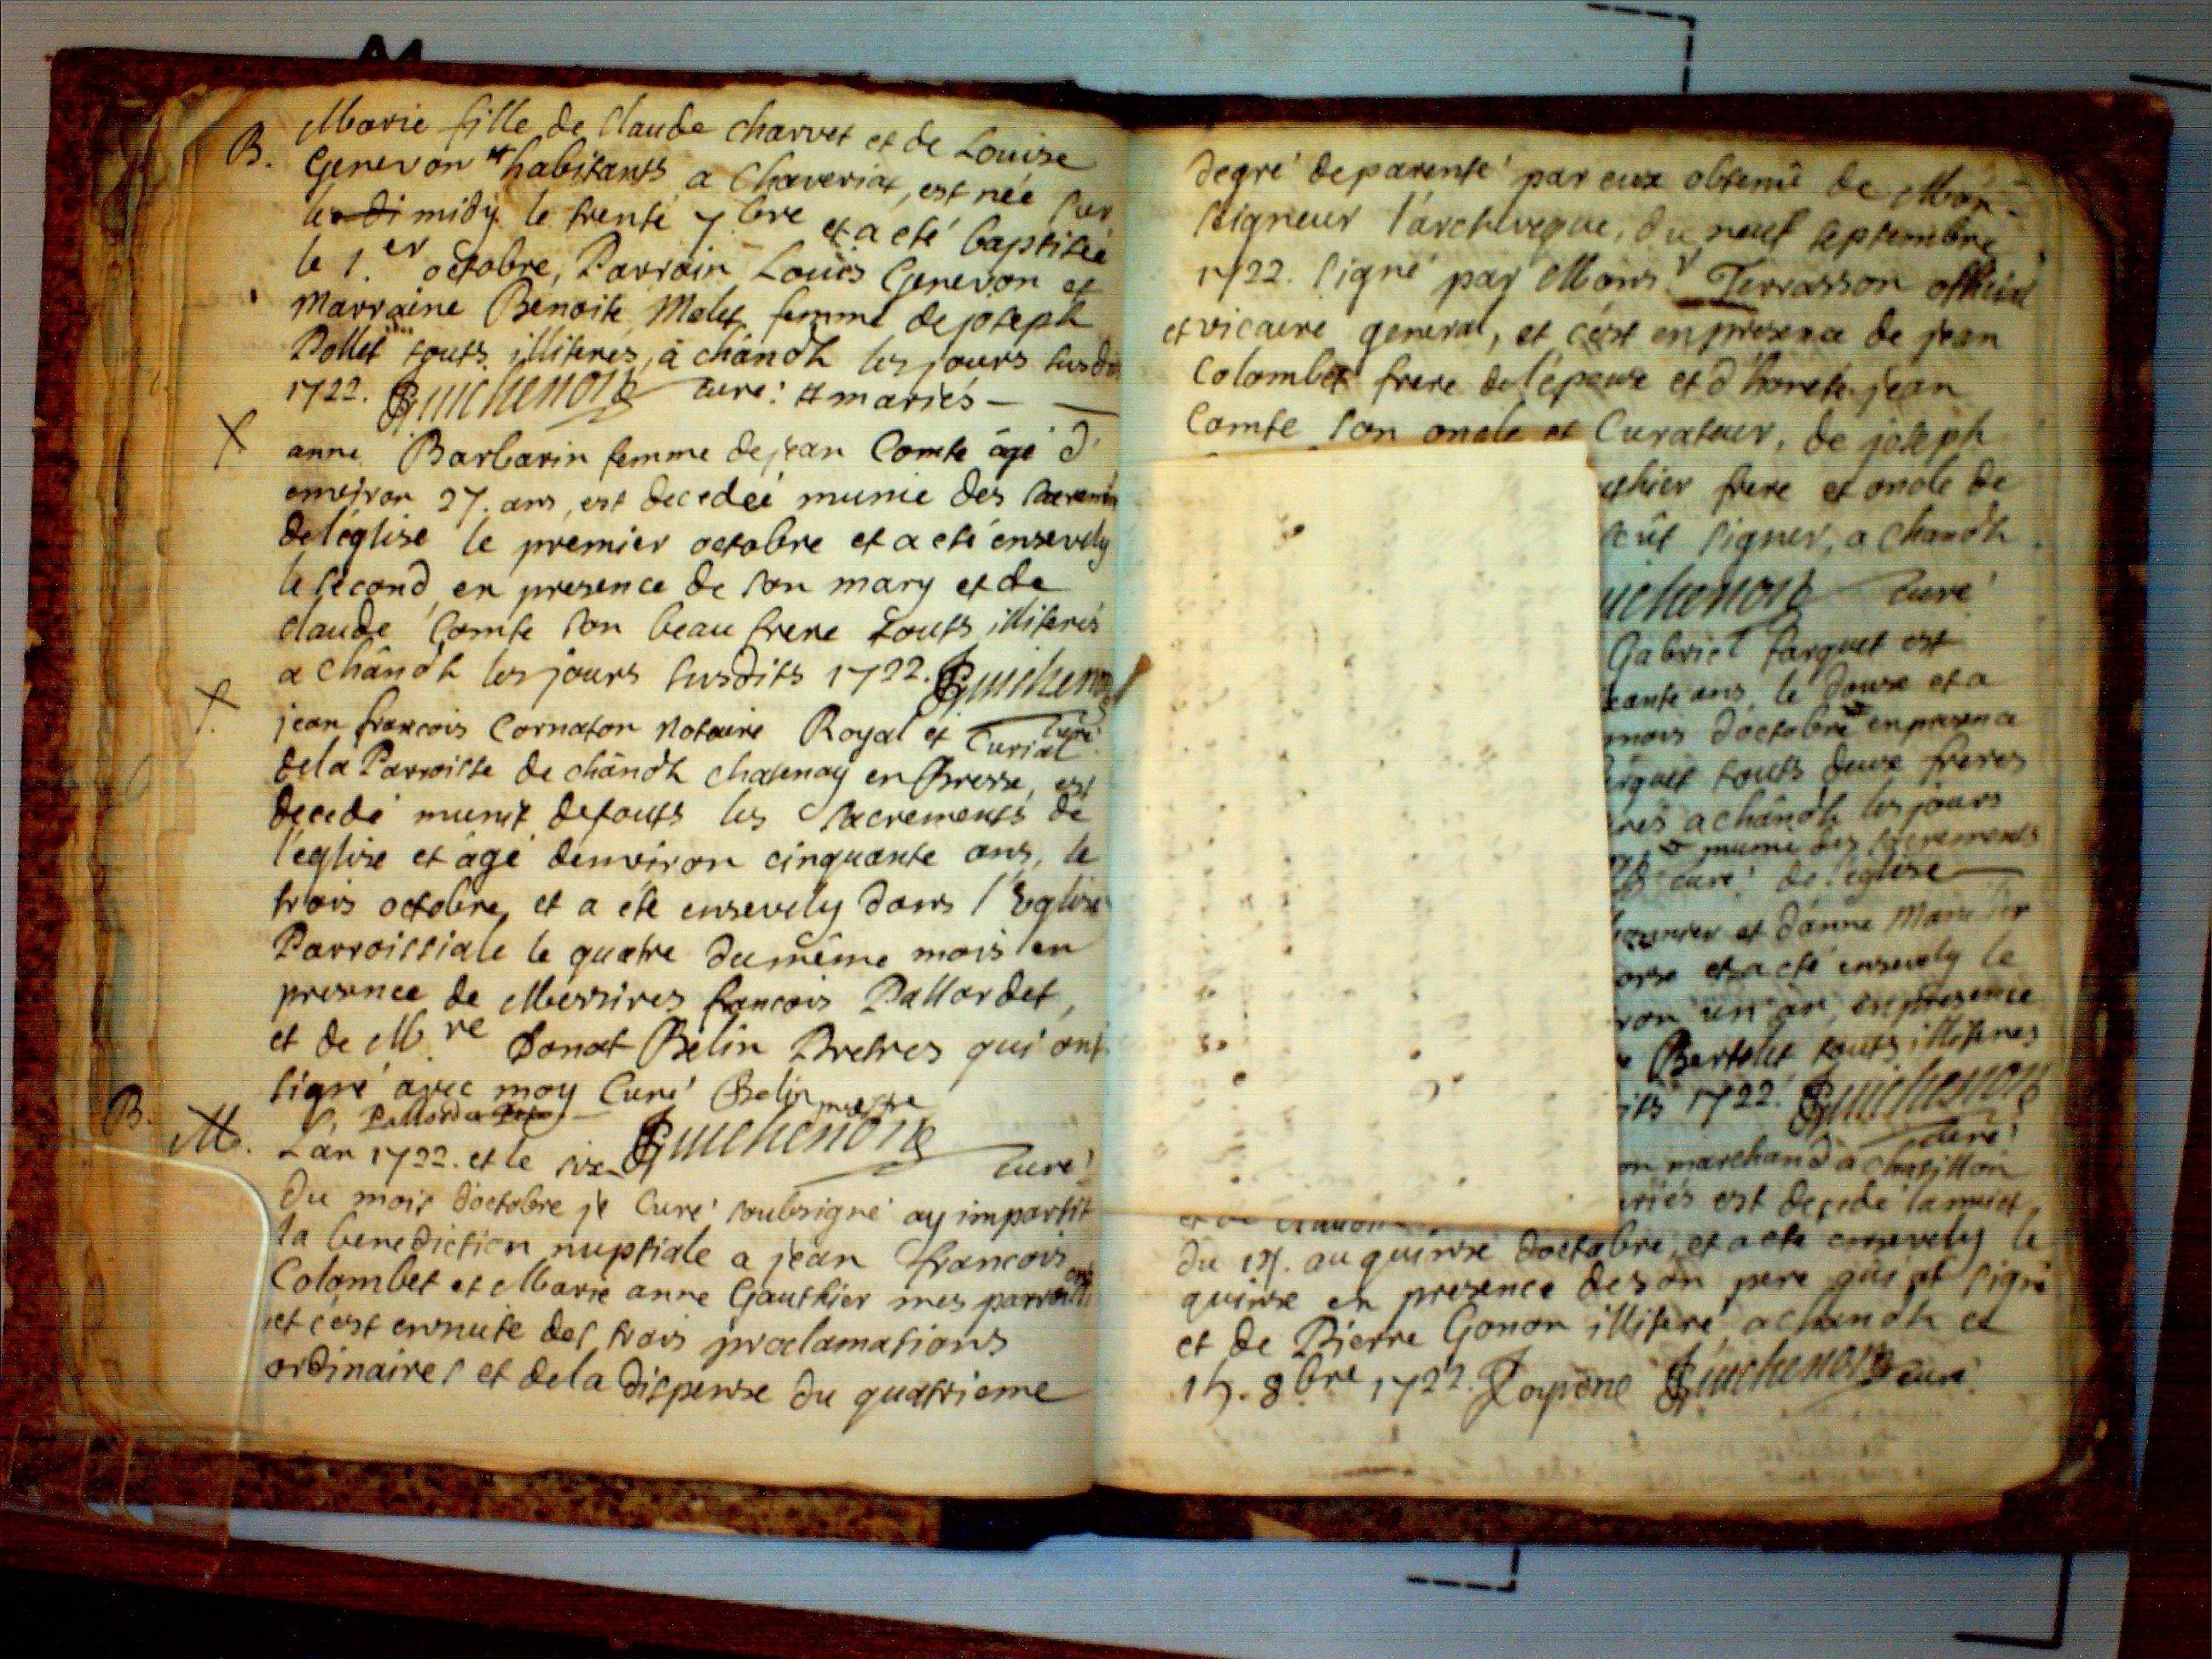 B. Marie fille de Claude charvet et de Louise
Genevon # habitants a Chaveriat, est née sur
le di midÿ le trente 7.bre et a eté baptisée
le 1.er octobre, Parrain Louis Genevon et
Marraine Benoite Malet femme de joseph
Pollet touts illiterés, à chânoh les jours susdits
1722. Guichenon curé: # mariés
anne Barbarin femme de jean Comte âgé d'
environ 27. ans, est decedeé munie des sacrem
de l'église le premier octobre et a eté ensevely
le second, en presence de son mary et de
claude Comte son beau frere touts illiterés
a chânoh les jours susdits 1722. Guichenon
curé
jean francois Cornaton Notaire Royal et Curial
de la Parroisse de chânoh chatenay en Bresse, est
decedé munit de touts les sacrements de
l'eglise et âgé d'environ cinquante ans, le
trois octobre, et a eté ensevely dans l'Eglise
Parroissiale le quatre du même mois en
presence de Messires francois Pallordet,
et de M.re Donat Belin Pretres qui ont
signé avec moy Curé Belin prestre
B. Pallordet
M. L'an 1722. et le six Guichenon curé
du mois d'octobre je Curé soubsigné ay impartit
la benediction nuptiale a jean francois
Colombet et Marie anne Gauthier mes parroiss
et c'est ensuite des trois proclamations
ordinaires et de la dispense du quatrieme
degré de parenté par eux obtenû de Mon-
seigneur l'archeveque, du neuf septembre
1722. signé par Mons.r Terrasson official
et vicaire general, et c'est en presence de jean
Colombet frere de l'epoux et d'honete jean
Comte son oncle et Curateur, de joseph
uthier frere et oncle de
sçût signer, a chanoh
uichenon curé
Gabriel farguet est
xante ans, le douze et a
mois d'octobre en presence
arguet touts deux freres
rés a chânoh les jours
munie des sacrements
curé de l'eglise
onnier et d'anne Man
orze et a eté ensevely le
ron un an, en presence
Bertelet, touts illiterés
its 1722. Guichenon
curé
on marchand a chatillon
ariés est decedé la nuict
du 14. au quinze d'octobre, et a eté ensevely le
quinze en presence de son pere qui at signé
et de Pierre Gonon illiteré, a chanoh ce
15. 8.bre 1722. Guichenon curé